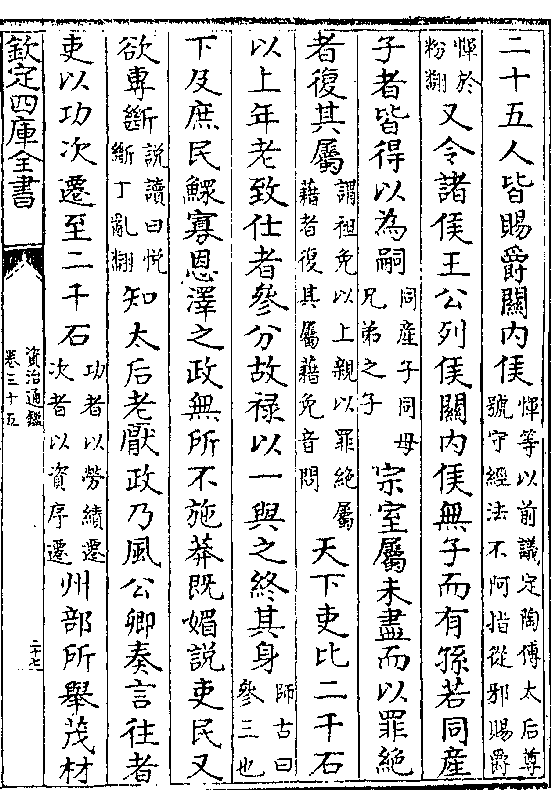 二十五人皆賜爵關内侯惲等以前議定陶傅太后尊號守經法不阿指從邪賜爵
惲於粉翻又令諸侯王公列侯關内侯無子而有孫若同産
子者皆得以為嗣同産子同母兄弟之子宗室屬未盡而以罪絶
者復其屬謂祖免以上親以罪絶屬藉者復其屬藉免音問天下吏比二千石
以上年老致仕者參分故禄以一與之終其身師古曰參三也
下及庶民鰥寡恩澤之政無所不施莽既媚說吏民又
欲專斷說讀曰悅斷丁亂翻知太后老厭政乃風公卿奏言往者
吏以功次遷至二千石功者以勞績遷次者以資序遷州部所舉茂材
欽定四庫全書
資治通鑑
卷三十五
二十七